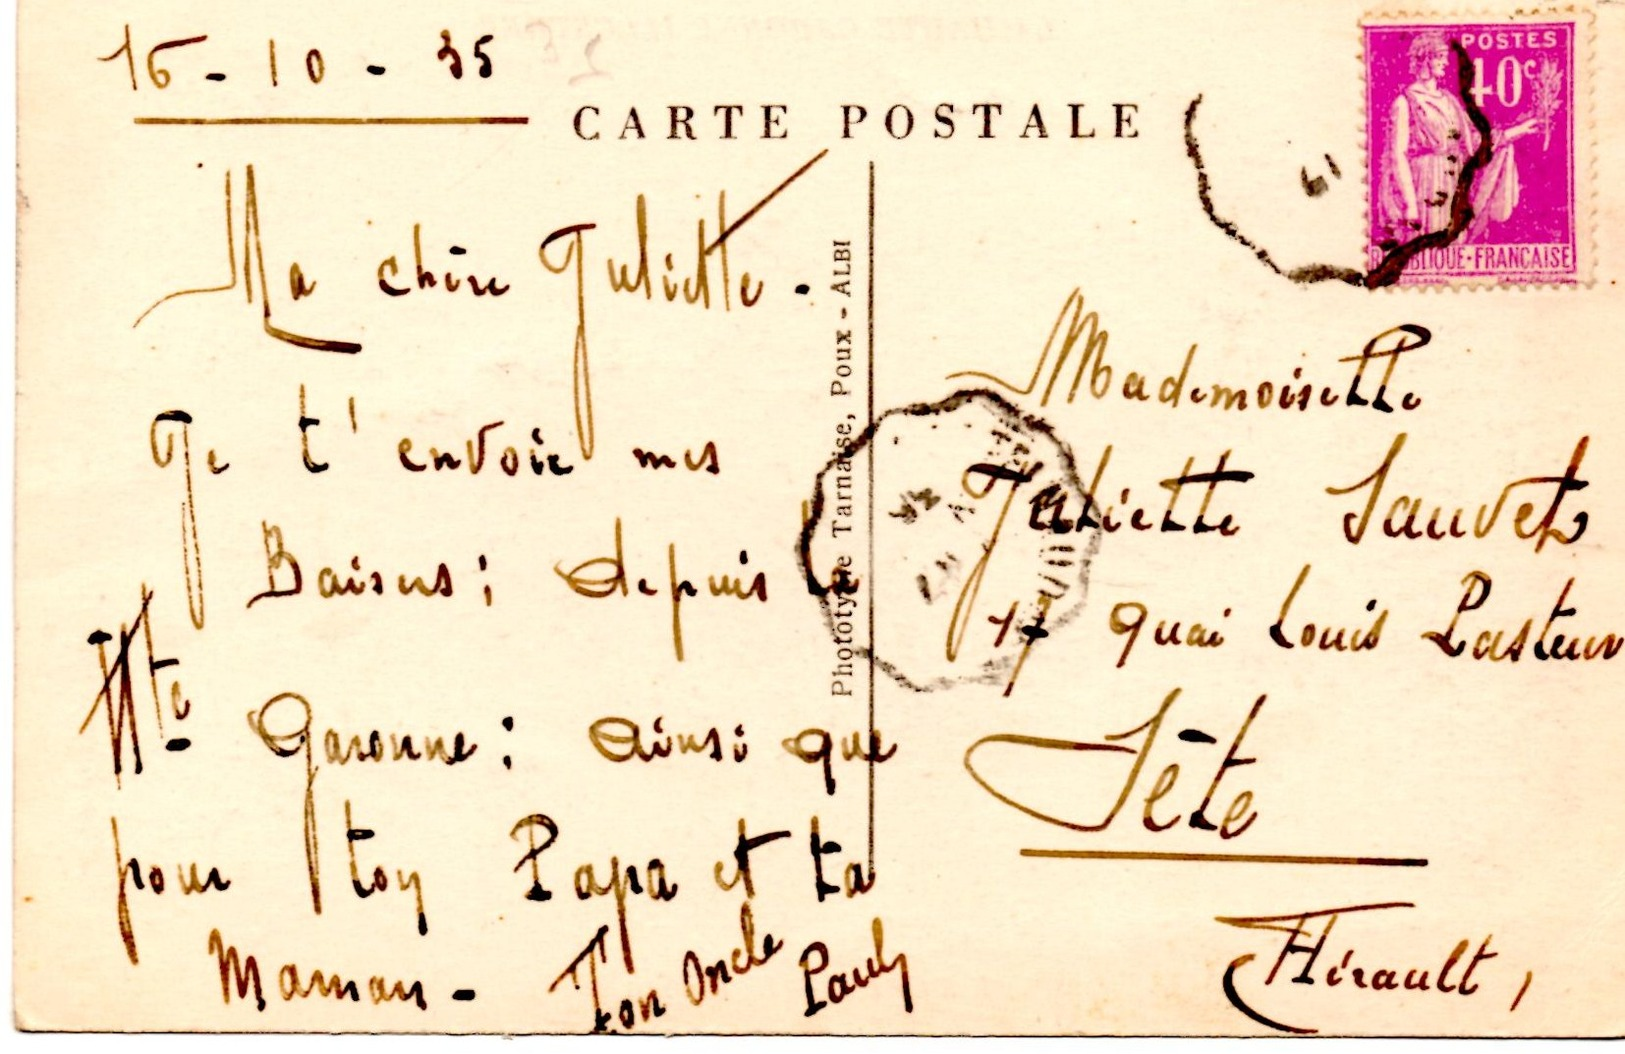 16-10-35
CARTE POSTALE
Ma chère Juliette.
Je t'envoie mes
Baisers; depuis la
Hte Garonne; ainsi que
pour ton Papa et ta
Maman-
Ton Oncle Pauly
Phototypie Tarnaise, Poux - ALBI
POSTES
40c
REPUBLIQUE-FRANCAISE
Mademoiselle
Juliette Sauvet
17 quai Louis Pasteur
Sète
Hérault,